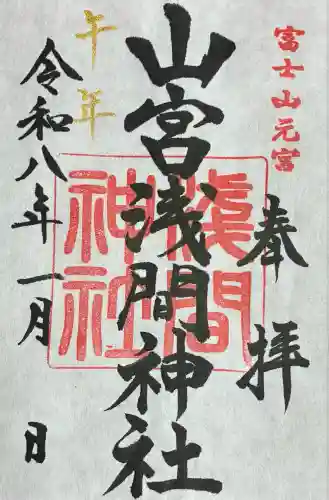 富士山元宮
奉拝
山宮浅間神社
午年
令和八年一月　日
淺間神社